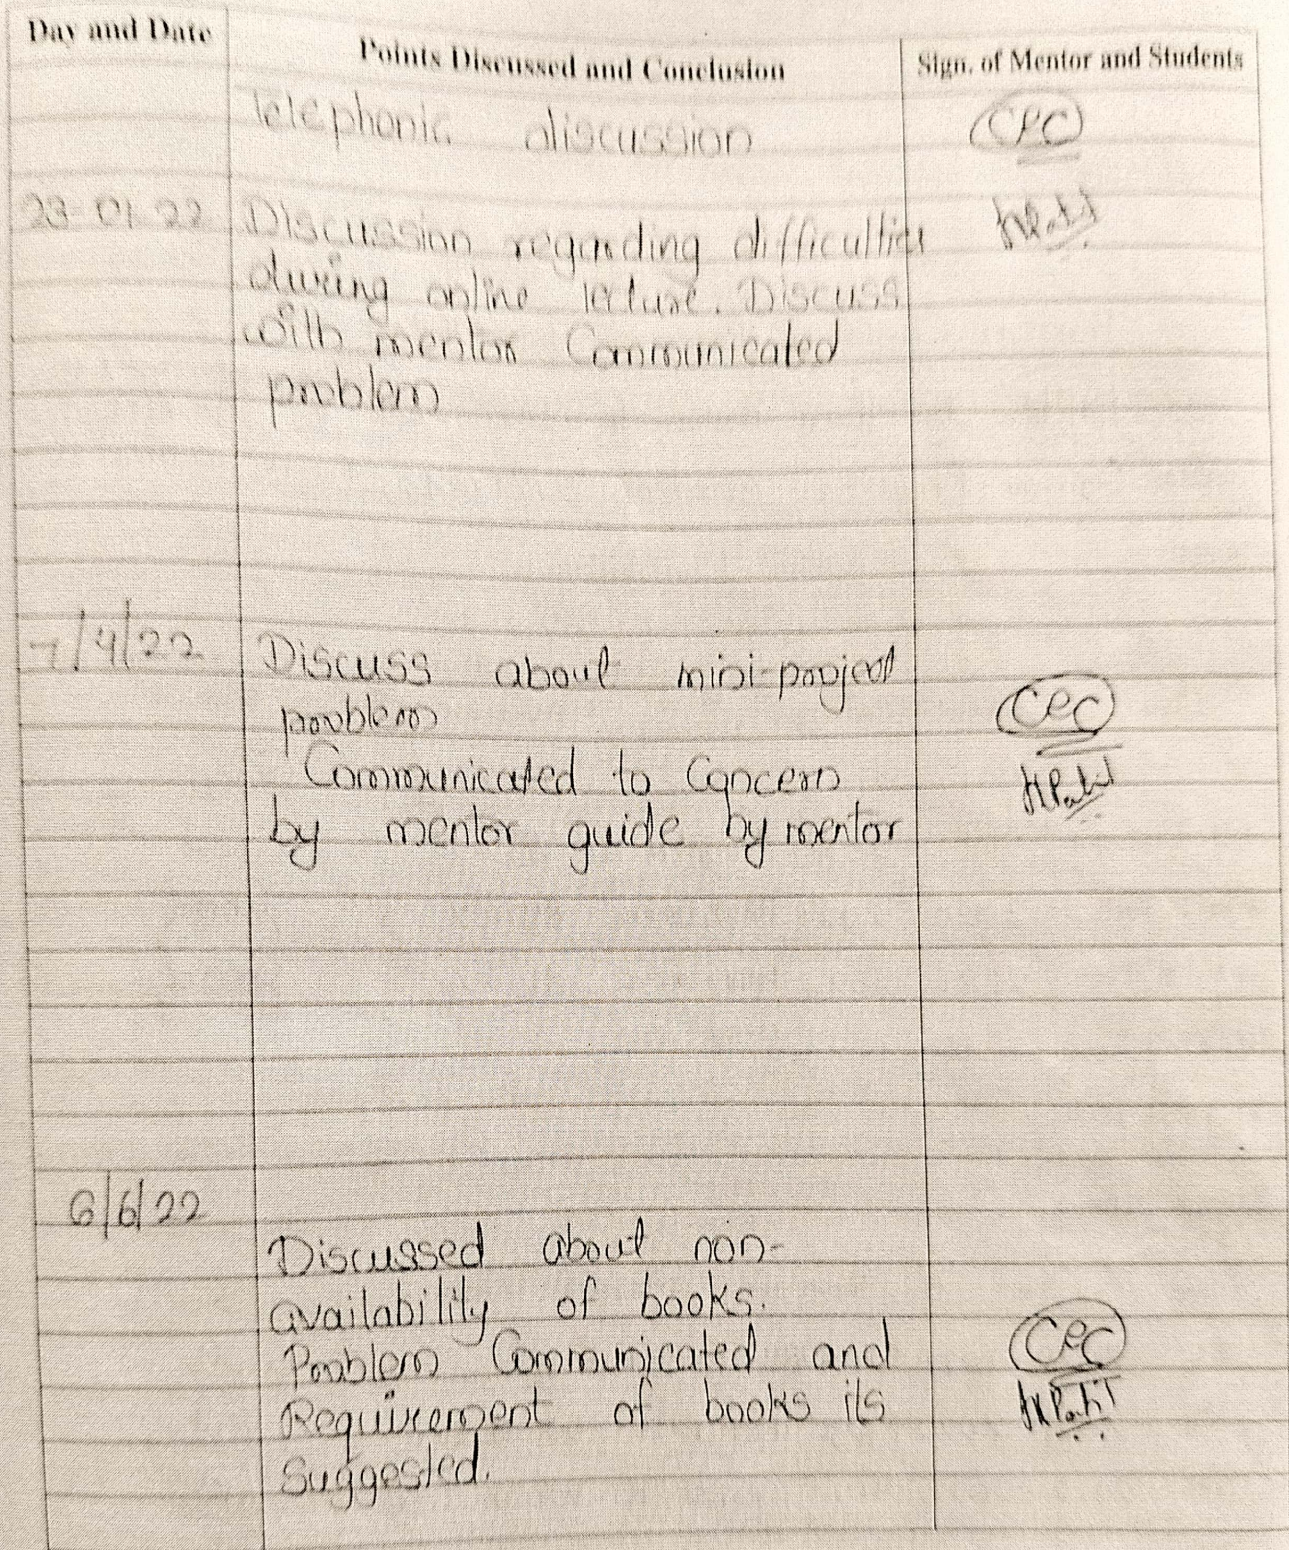 Day and Date Points Discussed and Conclusion Sign. of Mentor and Students
Telephonic discussion
23-01-22 Discussion regarding difficulties
during online lecture. Discuss
with mentor Communicated
problem
7/4/22 Discuss about mini-project
problem
Communicated to Concern
by mentor guide by mentor
6/6/22
Discussed about non-
availability of books.
Problem Communicated and
Requirement of books its
Suggested.